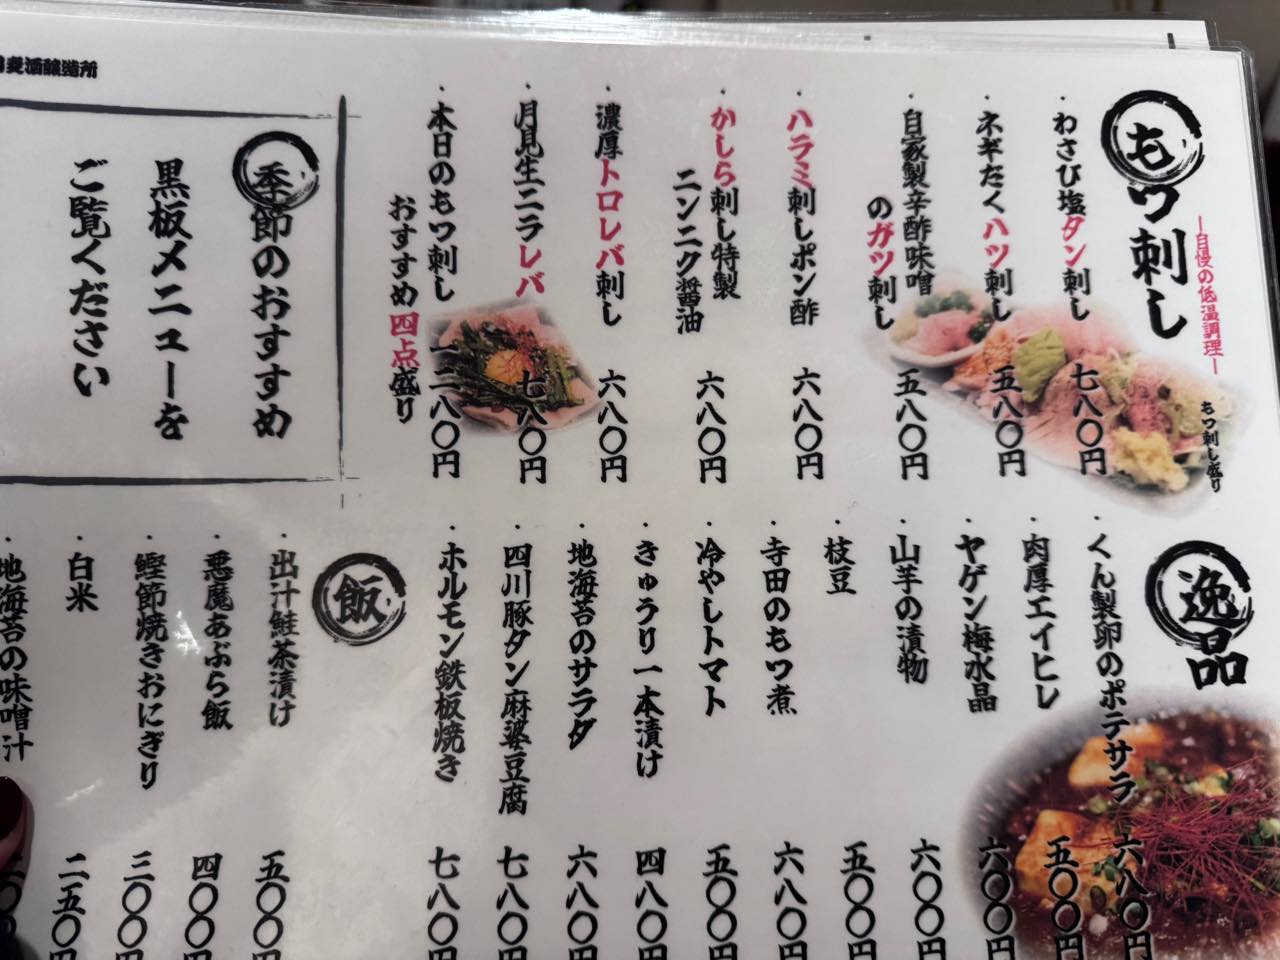 麦酒醸造所
もつ刺し
ー自慢の低温調理ー
もつ刺し盛り
・わさび塩タン刺し 七八〇円
・ネギだくハツ刺し 五八〇円
・自家製辛酢味噌
のガツ刺し 五八〇円
・ハラミ刺しポン酢 六八〇円
・かしら刺し特製
ニンニク醤油 六八〇円
・濃厚トロレバ刺し 六八〇円
・月見生ニラレバ 七八〇円
・本日のもつ刺し
おすすめ四点盛り 一二八〇円
季節のおすすめ
黒板メニューを
ご覧ください
逸品
・くん製卵のポテサラ 六八〇円
・肉厚エイヒレ 五〇〇円
・ヤゲン梅水晶 六〇〇円
・山芋の漬物 六〇〇円
・枝豆 五〇〇円
・寺田のもつ煮 六八〇円
・冷やしトマト 五〇〇円
・きゅうり一本漬け 四八〇円
・地海苔のサラダ 六八〇円
・四川豚タン麻婆豆腐 七八〇円
・ホルモン鉄板焼き 七八〇円
飯
・出汁鮭茶漬け 五〇〇円
・悪魔あぶら飯 四〇〇円
・鰹節焼きおにぎり 三〇〇円
・白米 二五〇円
・地海苔の味噌汁